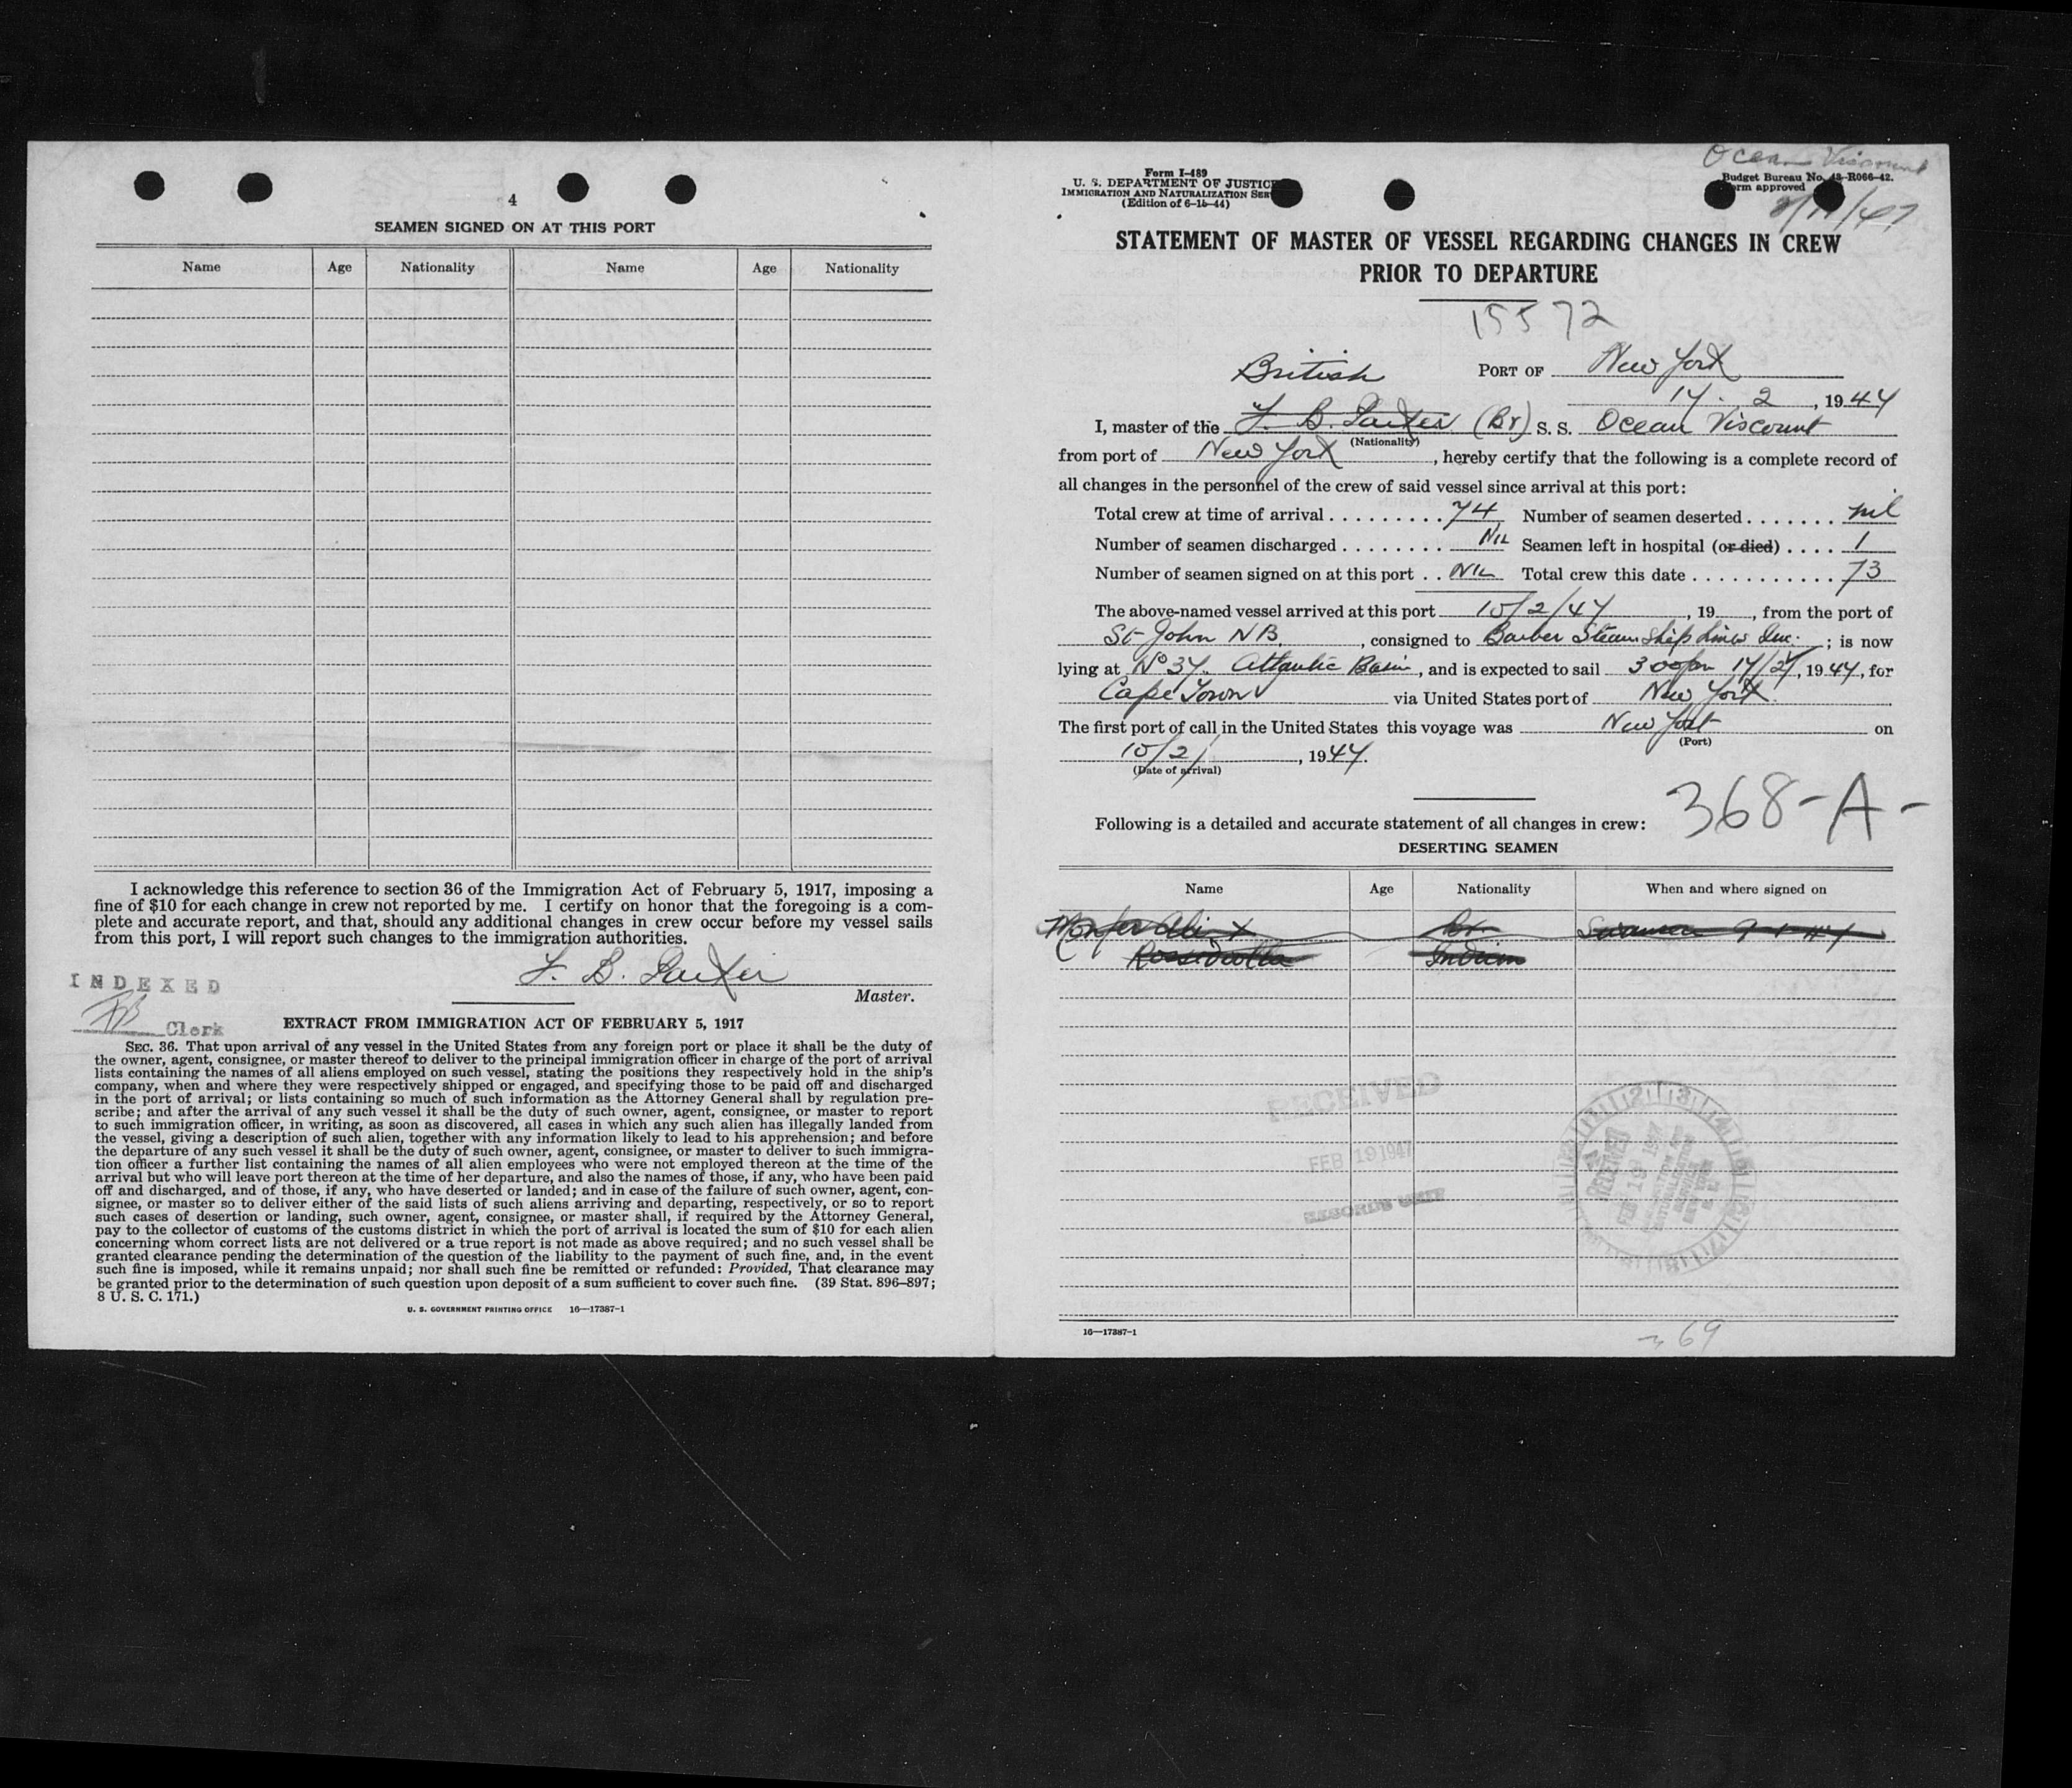 4
SEAMEN SIGNED ON AT THIS PORT
Name Age Nationality Name Age Nationality
I acknowledge this reference to section 36 of the Immigration Act of February 5, 1917, imposing a
fine of $10 for each change in crew not reported by me. I certify on honor that the foregoing is a com-
plete and accurate report, and that, should any additional changes in crew occur before my vessel sails
from this port, I will report such changes to the immigration authorities.
F. B.
Master.
INDEXED
Clerk
EXTRACT FROM IMMIGRATION ACT OF FEBRUARY 5, 1917
SEC. 36. That upon arrival of any vessel in the United States from any foreign port or place it shall be the duty of
the owner, agent, consignee, or master thereof to deliver to the principal immigration officer in charge of the port of arrival
lists containing the names of all aliens employed on such vessel, stating the positions they respectively hold in the ship's
company, when and where they were respectively shipped or engaged, and specifying those to be paid off and discharged
in the port of arrival; or lists containing so much of such information as the Attorney General shall by regulation pre-
scribe; and after the arrival of any such vessel it shall be the duty of such owner, agent, consignee, or master to report
to such immigration officer, in writing, as soon as discovered, all cases in which any such alien has illegally landed from
the vessel, giving a description of such alien, together with any information likely to lead to his apprehension; and before
the departure of any such vessel it shall be the duty of such owner, agent, consignee, or master to deliver to such immigra-
tion officer a further list containing the names of all alien employees who were not employed thereon at the time of the
arrival but who will leave port thereon at the time of her departure, and also the names of those, if any, who have been paid
off and discharged, and of those, if any, who have deserted or landed; and in case of the failure of such owner, agent, con-
signee, or master so to deliver either of the said lists of such aliens arriving and departing, respectively, or so to report
such cases of desertion or landing, such owner, agent, consignee, or master shall, if required by the Attorney General,
pay to the collector of customs of the customs district in which the port of arrival is located the sum of $10 for each alien
concerning whom correct lists are not delivered or a true report is not made as above required; and no such vessel shall be
granted clearance pending the determination of the question of the liability to the payment of such fine, and, in the event
such fine is imposed, while it remains unpaid; nor shall such fine be remitted or refunded: Provided, That clearance may
be granted prior to the determination of such question upon deposit of a sum sufficient to cover such fine. (39 Stat. 896–897;
8 U. S. C. 171.)
U. S. GOVERNMENT PRINTING OFFICE 16—17387-1
Ocean Viscount
Form I-489
U. S. DEPARTMENT OF JUSTICE
IMMIGRATION AND NATURALIZATION SER
(Edition of 6-15-44)
Budget Bureau No. 43-R066-42.
orm approved
/47
STATEMENT OF MASTER OF VESSEL REGARDING CHANGES IN CREW
PRIOR TO DEPARTURE
15572
British PORT OF New York
14. 2, 1947
I, master of the F. B. (Br) S. S. Ocean Viscount
(Nationality)
from port of New York, hereby certify that the following is a complete record of
all changes in the personnel of the crew of said vessel since arrival at this port:
Total crew at time of arrival 74 Number of seamen deserted nil
Number of seamen discharged NIL Seamen left in hospital (or died) 1
Number of seamen signed on at this port NIL Total crew this date 73
The above-named vessel arrived at this port 10/2/47, 19, from the port of
St John NB, consigned to Barber Steamship Lines Inc.; is now
lying at No 37. Atlantic Basin, and is expected to sail 300pm 17/2/, 1947, for
Cape Town via United States port of New York.
The first port of call in the United States this voyage was New York on
(Port)
10/2/, 1947.
(Date of arrival)
368-A-
Following is a detailed and accurate statement of all changes in crew:
DESERTING SEAMEN
Name Age Nationality When and where signed on
Ali X Br Swansea
Indian
RECEIVED
FEB 19 1947
RECORDS UNIT
RECEIVED
FEB 19 1947
IMMIGRATION AND
NATURALIZATION
SERVICE
NEW YORK
N. Y.
16—17387-1
69